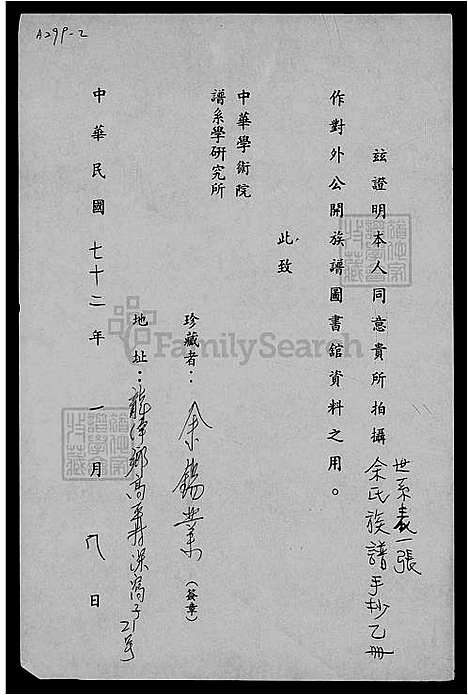 A299-2
茲證明本人同意貴所拍攝余氏族譜手抄乙冊
世系表一張
作對外公開族譜圖書舘資料之用。
此致
中華學術院
譜系學研究所
珍藏者：余錫業（簽章）
地址：龍潭鄉高平村深窩子21号
中華民國七十二年一月八日
FamilySearch